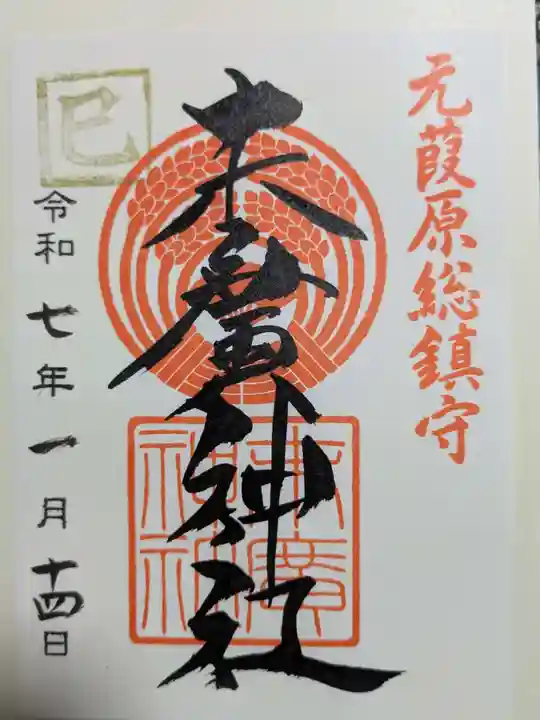 元葭原総鎮守
末廣神社
末廣神社
巳
令和七年一月十四日